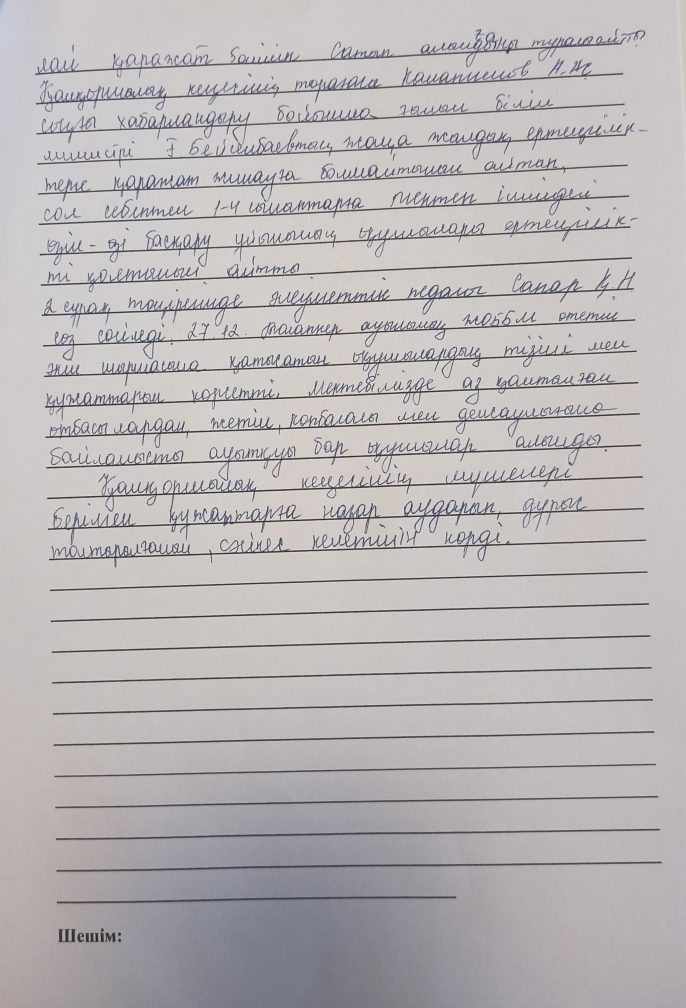 лай қаражат бөліп сатып алынғаны туралы айтты
Қамқоршылық кеңесінің төрағасы Н.Ж
соңғы хабарландыру бойынша ғалым білім
министрі Ғ Бейсембаевтың жаңа жылдық ертеңгілік-
терге қаражат жинауға болмайтынын айтып,
сол себептен 1-4 сыныптарға мектеп ішіндегі
өзін-өзі басқару ұйымының оқушылары ертеңгілік-
ті қоятынын айтты.
2 сұрақ төңірегінде әлеуметтік педагог Сапар Қ.Н
сөз сөйледі. 27.12. ауылының ЖОББМ өтетін
әкім шыршасына қатысатын оқушылардың тізімі мен
құжаттарын көрсетті. Мектебімізде аз қамтылған
отбасылардан, жетім, көпбалалы мен денсаулығына
байланысты ауытқуы бар оқушылар алынды.
Қамқоршылық кеңесінің мүшелері
берілген құжаттарға назар аударып, дұрыс
толтырылғанын, сәйкес келетінін көрді.
Шешім: